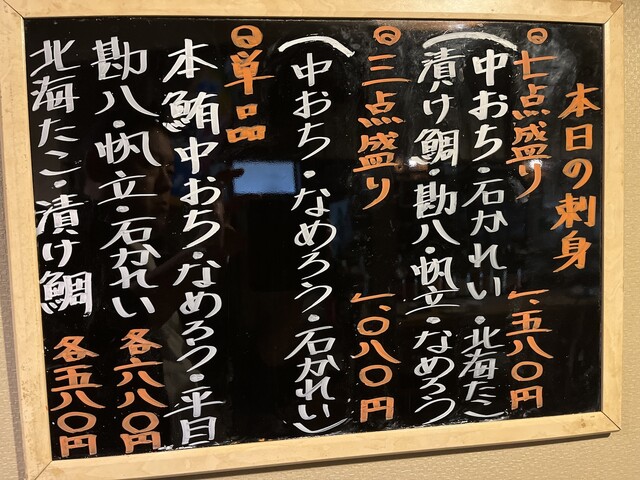 本日の刺身
七点盛り 一、五八〇円
(中おち・石かれい・北海たこ
漬け鯛・勘八・帆立・なめろう
三点盛り 一、〇八〇円
(中おち・なめろう・石かれい)
単品
本鮪中おち・なめろう・平目
勘八・帆立・石かれい 各六八〇円
北海たこ・漬け鯛 各五八〇円